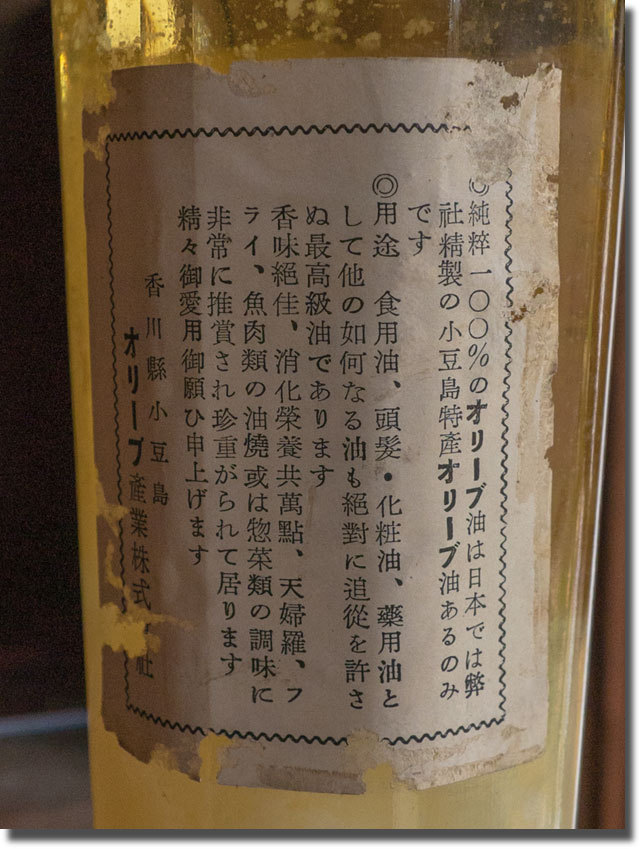 ◎純粹一〇〇%のオリーブ油は日本では弊
社精製の小豆島特產オリーブ油あるのみ
です
◎用途　食用油、頭髮・化粧油、藥用油と
して他の如何なる油も絕對に追從を許さ
ぬ最高級油であります
香味絕佳、消化榮養共萬點、天婦羅、フ
ライ、魚肉類の油燒或は惣菜類の調味に
非常に推賞され珍重がられて居ります
精々御愛用御願ひ申上げます
香川縣小豆島
オリーブ產業株式 社